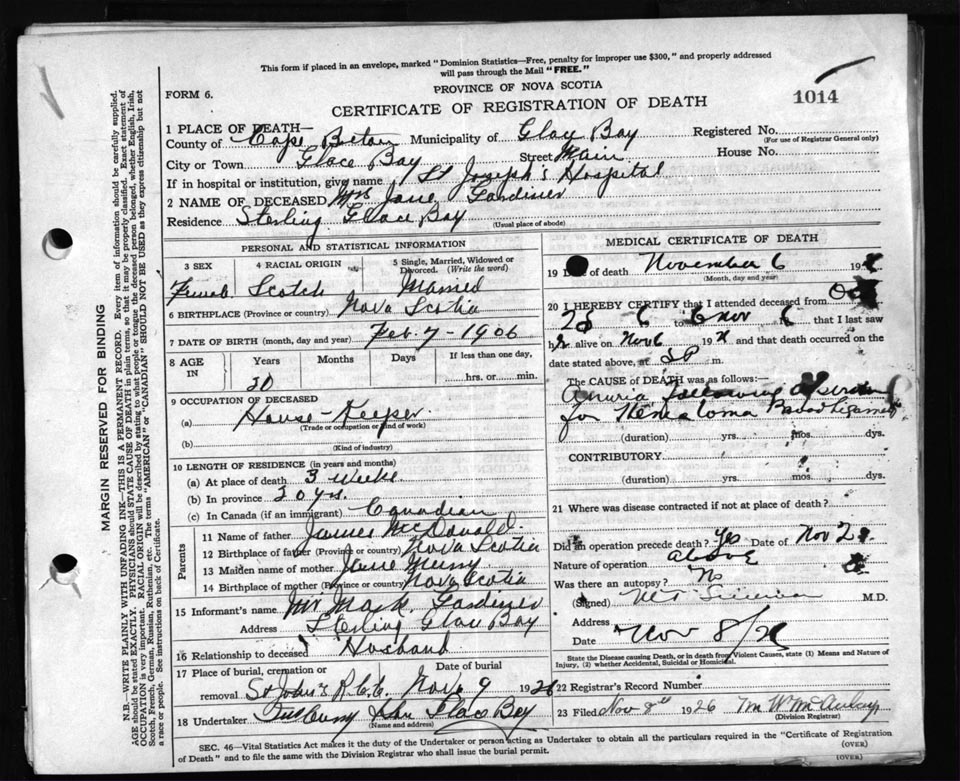 This form if placed in an envelope, marked "Dominion Statistics—Free, penalty for improper use $300," and properly addressed
will pass through the Mail "FREE."
FORM 6.
PROVINCE OF NOVA SCOTIA
CERTIFICATE OF REGISTRATION OF DEATH
1014
1 PLACE OF DEATH—
County of Cape Breton Municipality of Glace Bay Registered No.
(For use of Registrar General only)
City or Town Glace Bay Street Main House No.
If in hospital or institution, give name St Joseph's Hospital
2 NAME OF DECEASED Mrs Jane Gardiner
Residence Sterling Glace Bay
(Usual place of abode)
PERSONAL AND STATISTICAL INFORMATION
3 SEX 4 RACIAL ORIGIN 5 Single, Married, Widowed or Divorced. (Write the word)
Scotch Married
6 BIRTHPLACE (Province or country) Nova Scotia
7 DATE OF BIRTH (month, day and year) Feb. 7 - 1906
8 AGE IN Years Months Days If less than one day,
20 hrs. or min.
9 OCCUPATION OF DECEASED
(a) House-Keeper
(Trade or occupation or kind of work)
(b)
(Kind of industry)
10 LENGTH OF RESIDENCE (in years and months)
(a) At place of death 3 weeks
(b) In province 20 yrs.
(c) In Canada (if an immigrant) Canadian
Parents
11 Name of father James McDonald
12 Birthplace of father (Province or country) Nova Scotia
13 Maiden name of mother Jane
14 Birthplace of mother (Province or country) Nova Scotia
15 Informant's name Mr Mark Gardiner
Address Sterling Glace Bay
16 Relationship to deceased Husband
17 Place of burial, cremation or removal St John's Date of burial Nov 9 1926
18 Undertaker Glace Bay
(Name and address)
MEDICAL CERTIFICATE OF DEATH
19 Date of death November 6 19
(Month, day and year)
20 I HEREBY CERTIFY that I attended deceased from Oct
25 to 6 Nov that I last saw
alive on Nov 6 19 and that death occurred on the
date stated above, at m.
The CAUSE of DEATH was as follows:—
Anuria following
for Broad Ligament
(duration) yrs. mos. dys.
CONTRIBUTORY
(duration) yrs. mos. dys.
21 Where was disease contracted if not at place of death?
Did an operation precede death? Yes Date of Nov 2
Nature of operation above
Was there an autopsy? No
(Signed) M.D.
Address
Date Nov 8/26
State the Disease causing Death, or in death from Violent Causes, state (1) Means and Nature of
Injury, (2) whether Accidental, Suicidal or Homicidal.
22 Registrar's Record Number
23 Filed Nov 8th 1926
(Division Registrar)
SEC. 46—Vital Statistics Act makes it the duty of the Undertaker or person acting as Undertaker to obtain all the particulars required in the "Certificate of Registration
of Death" and to file the same with the Division Registrar who shall issue the burial permit.
(OVER)
(OVER)
MARGIN RESERVED FOR BINDING
N.B.—WRITE PLAINLY WITH UNFADING INK—THIS IS A PERMANENT RECORD. Every item of information should be carefully supplied.
AGE should be stated EXACTLY. PHYSICIANS should STATE CAUSE OF DEATH in plain terms, so that it may be properly classified. Exact statement of
OCCUPATION is very important. RACIAL ORIGIN will be described by stating to what people or tongue the deceased person belonged, whether English, Irish,
Scotch, French, German, Russian, Ruthenian, etc. The terms "AMERICAN" or "CANADIAN" SHOULD NOT BE USED as they express citizenship but not
a race or people. See instructions on back of Certificate.